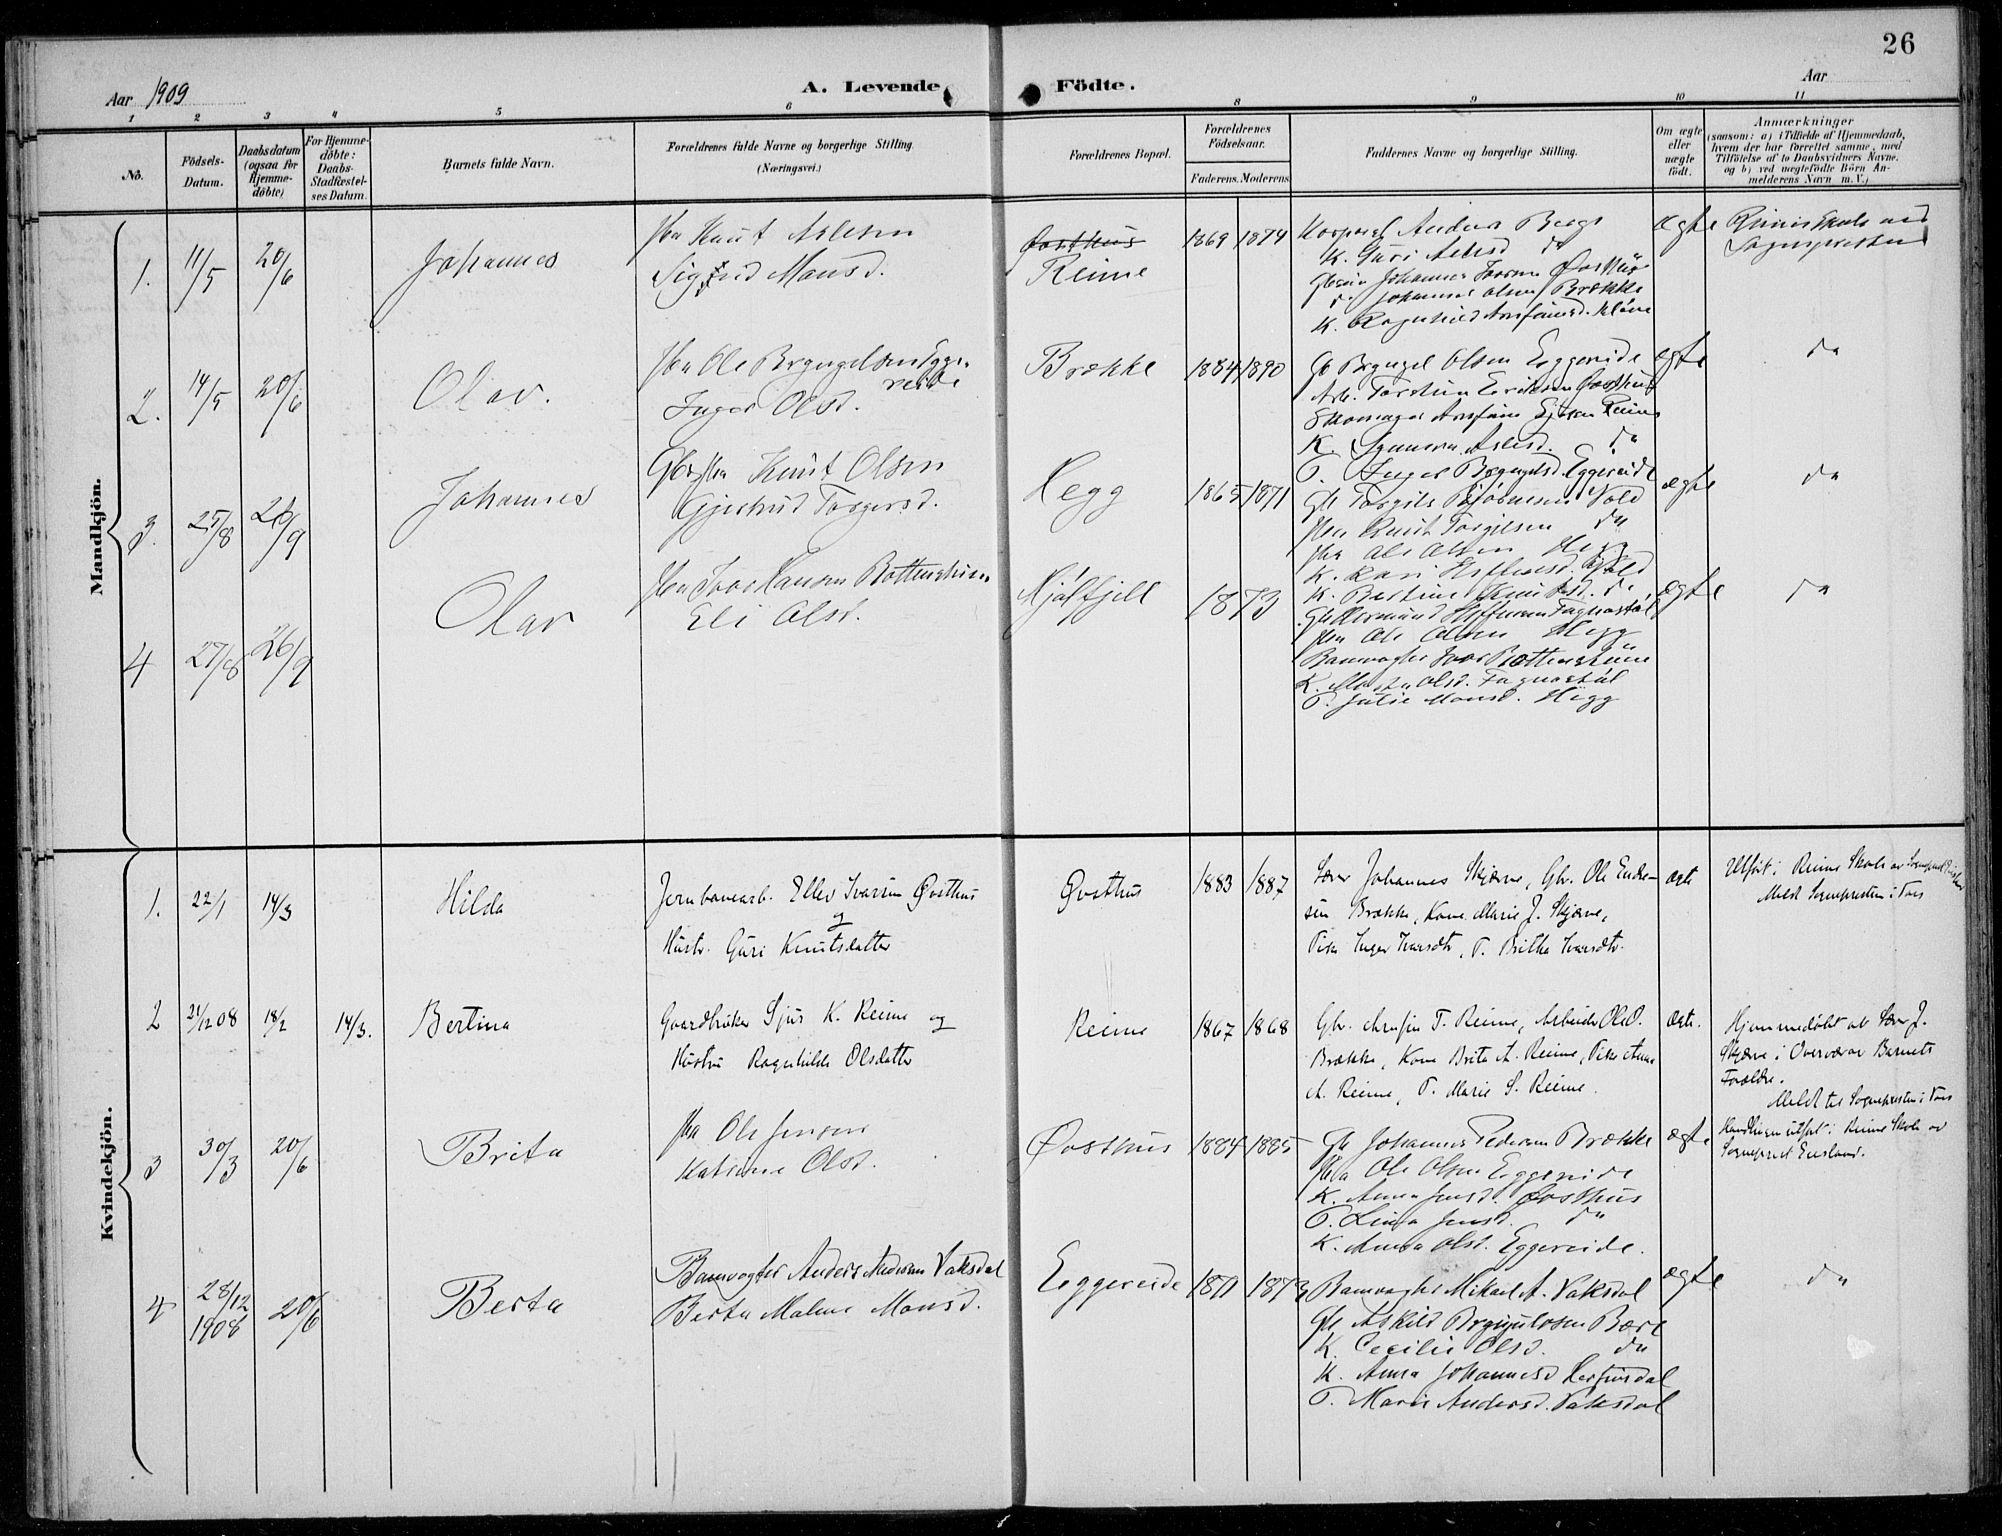 26
Aar 1909
A. Levende
Födte.
Aar
1 2 3 4 5 6 8 9 10 11
No.
Födsels-
Datum.
Daabsdatum
(ogsaa for
Hjemme-
döbte)
For Hjemme-
döbte:
Daabs-
Stadfæstel-
ses Datum.
Barnets fulde Navn.
Forældrenes fulde Navne og borgerlige Stilling.
(Næringsvei.)
Forældrenes Bopæl.
Forældrenes
Födselsaar.
Faderens. Moderens.
Faddernes Navne og borgerlige Stilling.
Om ægte
eller
uægte
födt.
Anmærkninger
(saasom: a) i Tilfælde af Hjemmedaab,
hvem der har forrettet samme, med
Tilföielse af to Daabsvidners Navne.
og b) ved uægtefödte Börn An-
melderens Navn m. V.)
Mandkjön.
1. 11/5 20/6 Johannes
Knut Aslesen
Sigfrid Monsd.
Øvsthus
Reime
1869 1874
Korporal Anders Berge
K. Guri Aslesd. do
Johannes Ivarsen Øvsthus
do Johannes Olsen Brække
K. Ragnhild Arnfinsd. Kløve
ægte
Reime Skole ved
Sognepresten
2. 14/5 20/6 Olav.
Ole Brynjelsen Egge-
reide
Inger Olsd.
Brække
1884 1890
Gb Brynjel Olsen Eggereide
Arb. Torstein Eriksen Øvsthus
Skomager Arnfinn Reime
K. Aslesd. do
P. Inger Brynjelsd. Eggereide
ægte
do
3. 25/8 26/9 Johannes
Knut Olsen
Gjertrud Torgersd.
Hegg
1865 1871
Gb Torgils Bjørnesen Vold
Knut Torgilsen do
Ole Olsen Hegg
K. Kari Vold
K. Bertine do
ægte
do
4 27/8 26/9 Olav
Ivar Hansen Rottenskinn
Eli Olsd.
Mjølfjell
1873
Ole Olsen Hegg
Banevogter Ivar Rottenskinn
K. Olsd. Fagnastøl
P. Julie Monsd. Hegg
ægte
do
Kvindekjön.
1. 22/1 14/3 Hilda
Jernbanearb. Ellev Ivarsen Øvsthus
og
Hustr. Guri Knutsdatter
Øvsthus
1883 1887
Lærer Johannes Skjerve, Gbr. Ole Endre-
sen Brække, Kone Marie J. Skjerve,
Pike Inger Ivarsdtr, P. Britha Ivarsdtr.
ægte
Utført i Reime Skole av
Meldt Sognepresten i Vos
2 21/12 08 18/2 14/3. Bertina
Gaardbruker Sjur K. Reime og
Hustru Ragnhilde Olsdatter
Reime
1867 1868
Gbr. Arnfin T. Reime, Arbeider Ole O.
Brække, Kone Brita A. Reime, Pike Anna
A. Reime, P. Marie S. Reime.
ægte.
Hjemmedøbt av Lærer J.
Skjerve i Overvær av Barnets
Forældre.
Meldt til Sognepresten i Vos
Handlingen utført i Reime Skole av
Sogneprest
3 30/3 20/6 Brita
Ole Jensen
Katrine Olsd.
Øvsthus
1884 1885
Gb Johannes Pedersen Brække
Ole Olsen Eggereide
K. Anna Jensd. Øvsthus
P. Lina Jensd. do
K. Anna Olsd. Eggereide.
ægte
4 28/12 1908 20/6 Berta
Banevogter Anders Andersen Vaksdal
Berta Malene Monsd.
Eggereide
1871 1873
Banevogter Mikael A. Vaksdal
Gb Askild Brynjulvsen Bære
K. Cecilie Olsd. do
K. Anna Johannesd. Herfinsdal
P. Marie Andersd. Vaksdal
ægte
do